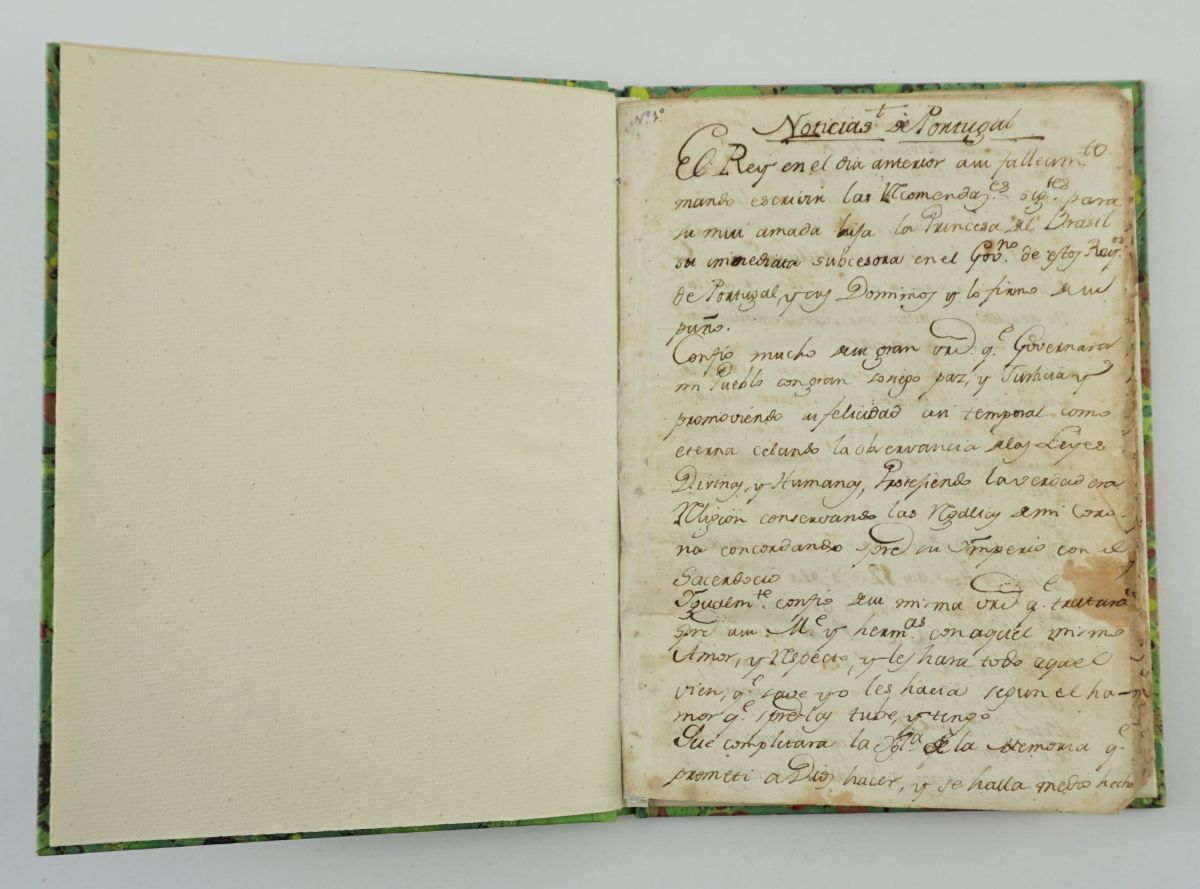 N.º 1º
Noticias de Portugal
El Rey en el dia anterior a su fallecim.to
mando escrivir las Recomendaz.es sig.tes para
su mui amada hija la Princesa del Brasil
su immediata subcesora en el Gov.no de estos Rey.os
de Portugal, y sus Dominios y lo firmo de su
puño.
Confio mucho de su gran vrd. q.e Governara
mi Pueblo con gran sosiego paz, y Justicia y
promoviendo su felicidad asi temporal como
eterna celando la observancia de las Leyes
Divinas, y Humanas, Protejiendo la verdadera
Religion conservando las Regalias de mi Coro-
na concordando spre su Imperio con el
Sacerdocio
Igualm.te confio de su misma vrd q.e tratara
spre a su M.e y herm.as con aquel mismo
Amor, y Respecto, y les hara todo aquel
vien, q.e save yo les hacia segun el ha-
mor q.e spre las tube, y tengo
Que completara la Ygl.a de la Memoria q.e
prometi a Dios hacer, y se halla medio hecha